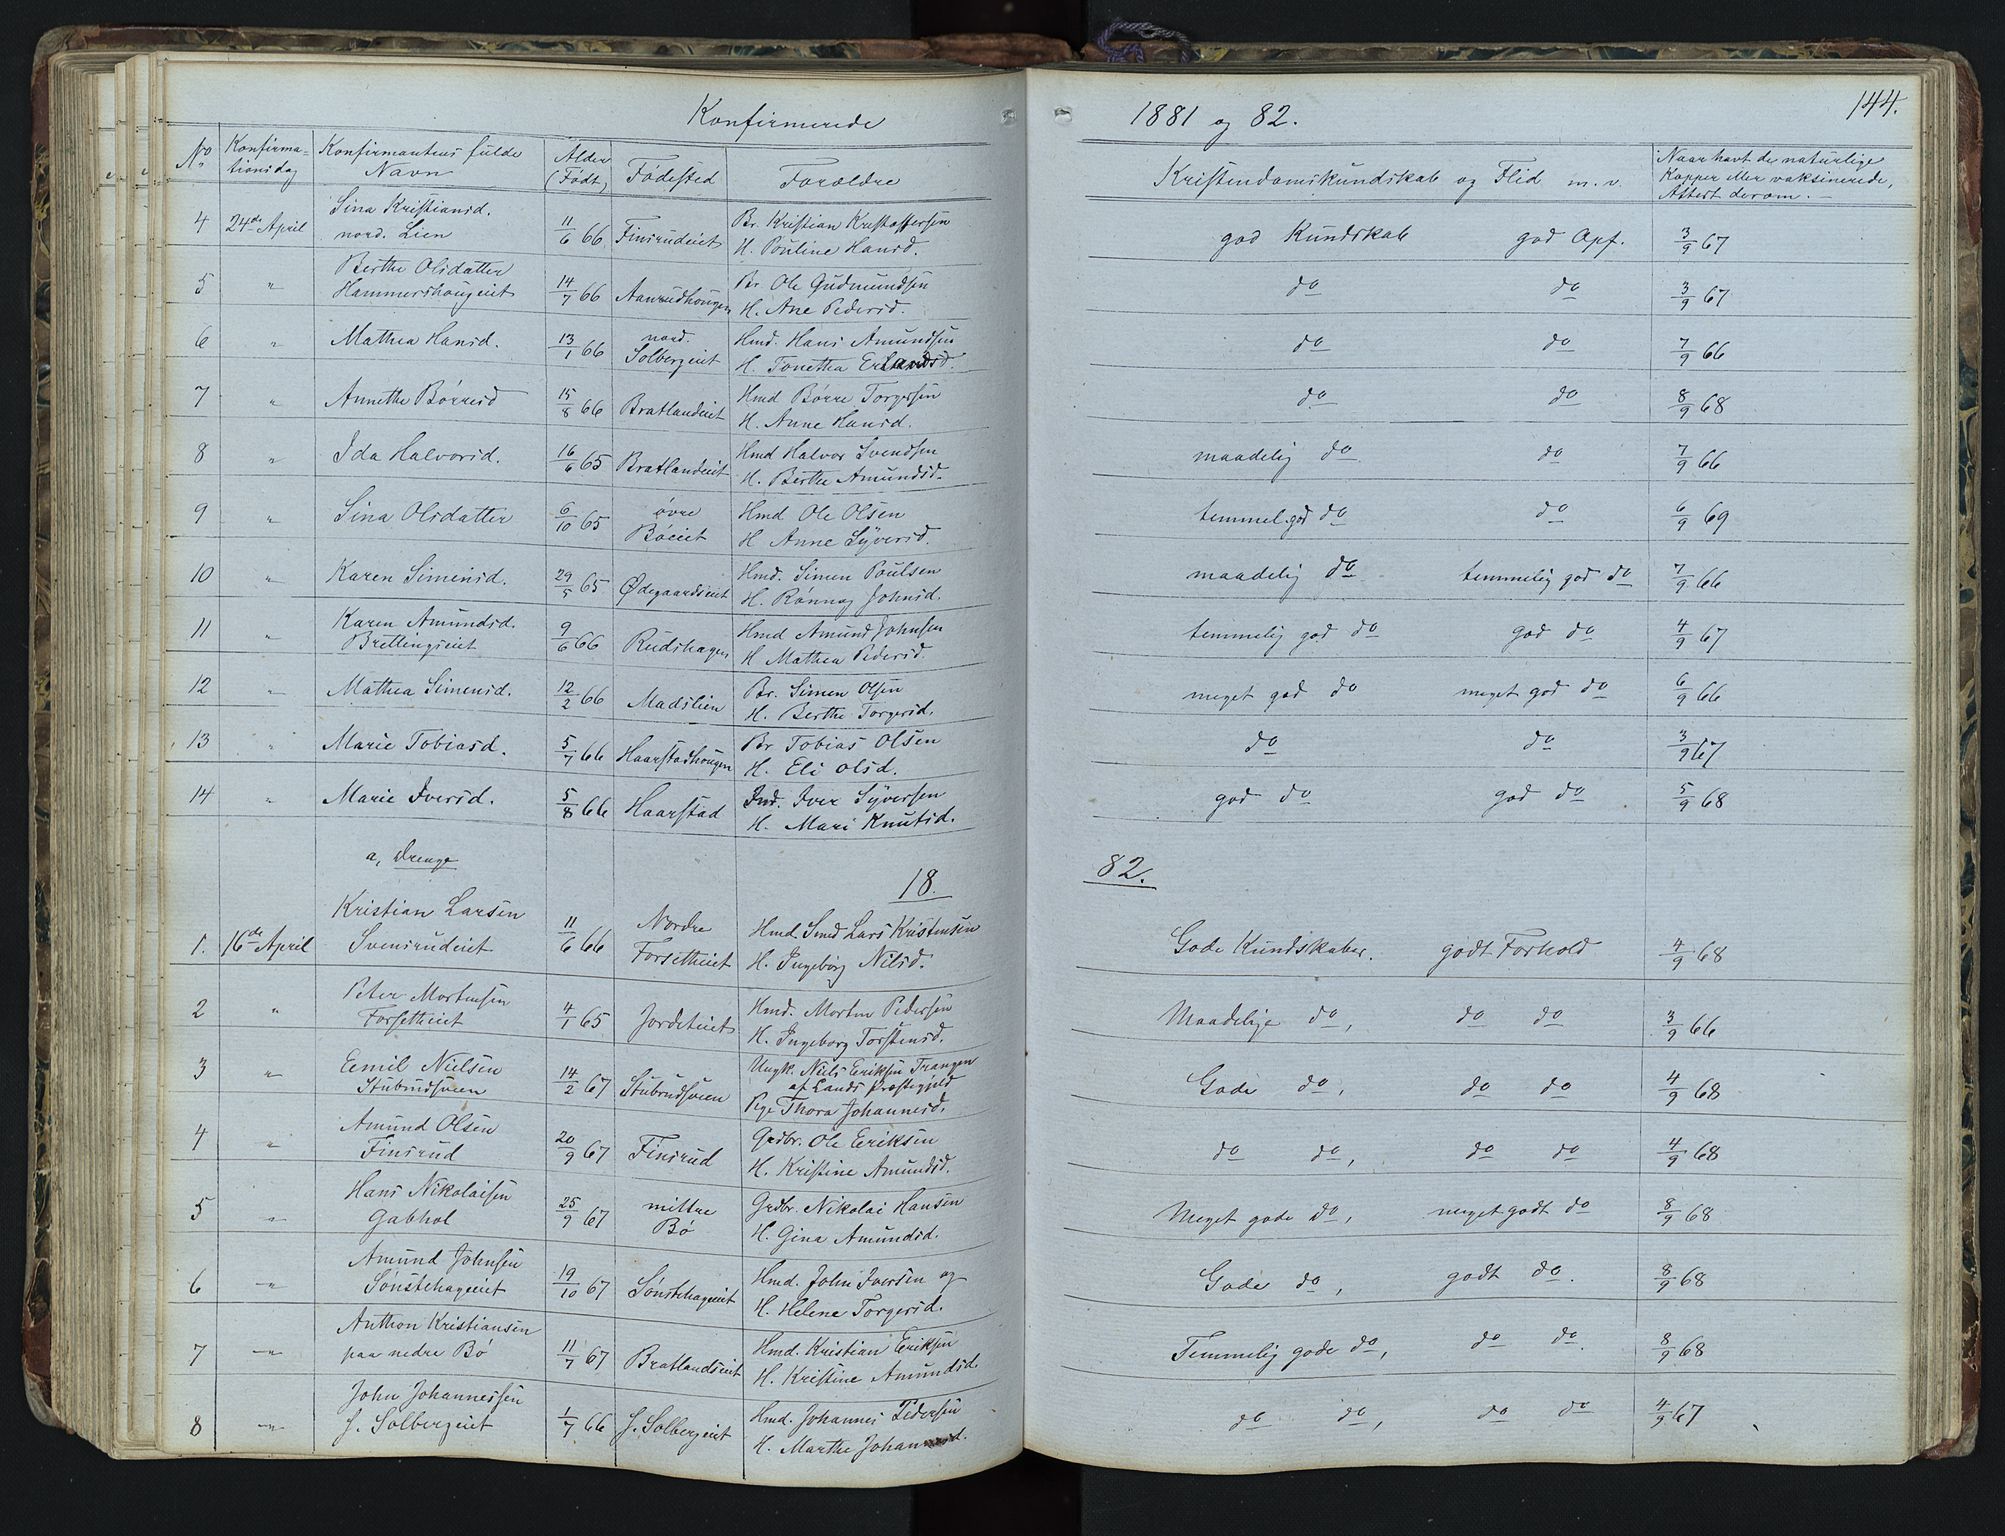 Konfirmerede 1881 og 82. 144.
No. Konfirma-tionsdag Konfirmantens fulde Navn Alder (Født) Fødested Forældre Kristendomskundskab og Flid m. v. Naar havt de naturlige Kopper eller vaksinerede, Attest derom.
4 24de April Sina Kristiansd. nord. Lien 11/6 66 Finsrudeiet Br. Kristian Kristoffersen H. Pouline Hansd. god Kundskab god Opf. 3/9 67
5 " Berthe Olsdatter Hammershougeiet 14/7 66 Aanrudhougen Br Ole Gudmundsen H. Ane Pedersd. do do 3/9 67
6 " Mathea Hansd. 13/1 66 nord. Solbergeiet Hmd. Hans Amundsen H. Tonetha Erlandsd. do do 7/9 66
7 " Annethe Børresd 15/8 66 Bratlandeiet Hmd Børre Torgersen H. Anne Hansd. do do 8/9 68
8 " Ida Halvorsd. 16/6 65 Bratlandeiet Hmd Halvor Svendsen H. Berthe Amundsd. maadelig do do 7/9 66
9 " Sina Olsdatter 6/10 65 øvre Bøeiet Hmd Ole Olsen H Anne Syversd. temmel. god do do 6/9 69
10 " Karen Simensd. 29/5 65 Ødegaardseiet Hmd. Simen Poulsen H. Rønnog Johnsd. maadelig do temmelig god do 7/9 66
11 " Karen Amundsd. Brettingseiet 9/6 66 Rudshagen Hmd Amund Johnsen H Mathea Pedersd. temmelig god do god do 4/9 67
12 " Mathea Simensd. 12/2 66 Madslien Br. Simen Olsen H. Berthe Torgersd. meget god do meget god do 6/9 66
13 " Marie Tobiasd. 5/7 66 Haarstadhougen Br Tobias Olsen H. Eli Olsd. do do 3/9 67
14 " Marie Iversd. 5/8 66 Haarstad Ind. Iver Syversen H. Mari Knutsd. god do god do 5/9 68
a, Drenge 18 82.
1. 16de April Kristian Larsen Svensrudeiet 11/6 66 Nordre Forsetheiet Hmd Smed Lars Kristensen H. Ingebørg Nilsd. Gode Kundskaber. godt Forhold 4/9 68
2 " Peter Mortensen Forsetheiet 4/1 65 Jordeteiet Hmd. Morten Pedersen H. Ingeborg Torstensd. Maadelige do, do do 3/9 66
3 " Eemil Nielsen Stubrudsveen 14/2 67 Stubrudsveen Ungk. Niels Eriksen Trangen af Lands Præstegjeld Pige Thora Johannesd. Gode do, do do 4/9 68
4 " Amund Olsen Finsrud 20/9 67 Finsrud Grdbr. Ole Eriksen H. Kristine Amundsd. do do, do do 4/9 68
5 " Hans Nikolaisen Gabhol 25/9 67 mittre Bø Grdbr. Nikolai Hansen H. Gina Amundsd. Meget gode do, meget godt do 8/9 68
6 " Amund Johnsen Sønstehageeiet 19/10 67 Sønstehageeiet Hmd. John Iversen og H. Helene Torgersd. Gode do, godt do. 8/9 68
7 " Anthon Kristiansen paa nedre Bø 11/7 67 Bratlandseiet Hmd. Kristian Eriksen H. Kristine Amundsd. Temmelig gode do, do do. 8/9 68
8 " John Johannessen S. Solbergeiet 1/7 66 S. Solbergeiet Hmd. Johannes Pedersen H. Marthe Johannesd. do do, do do 4/9 67